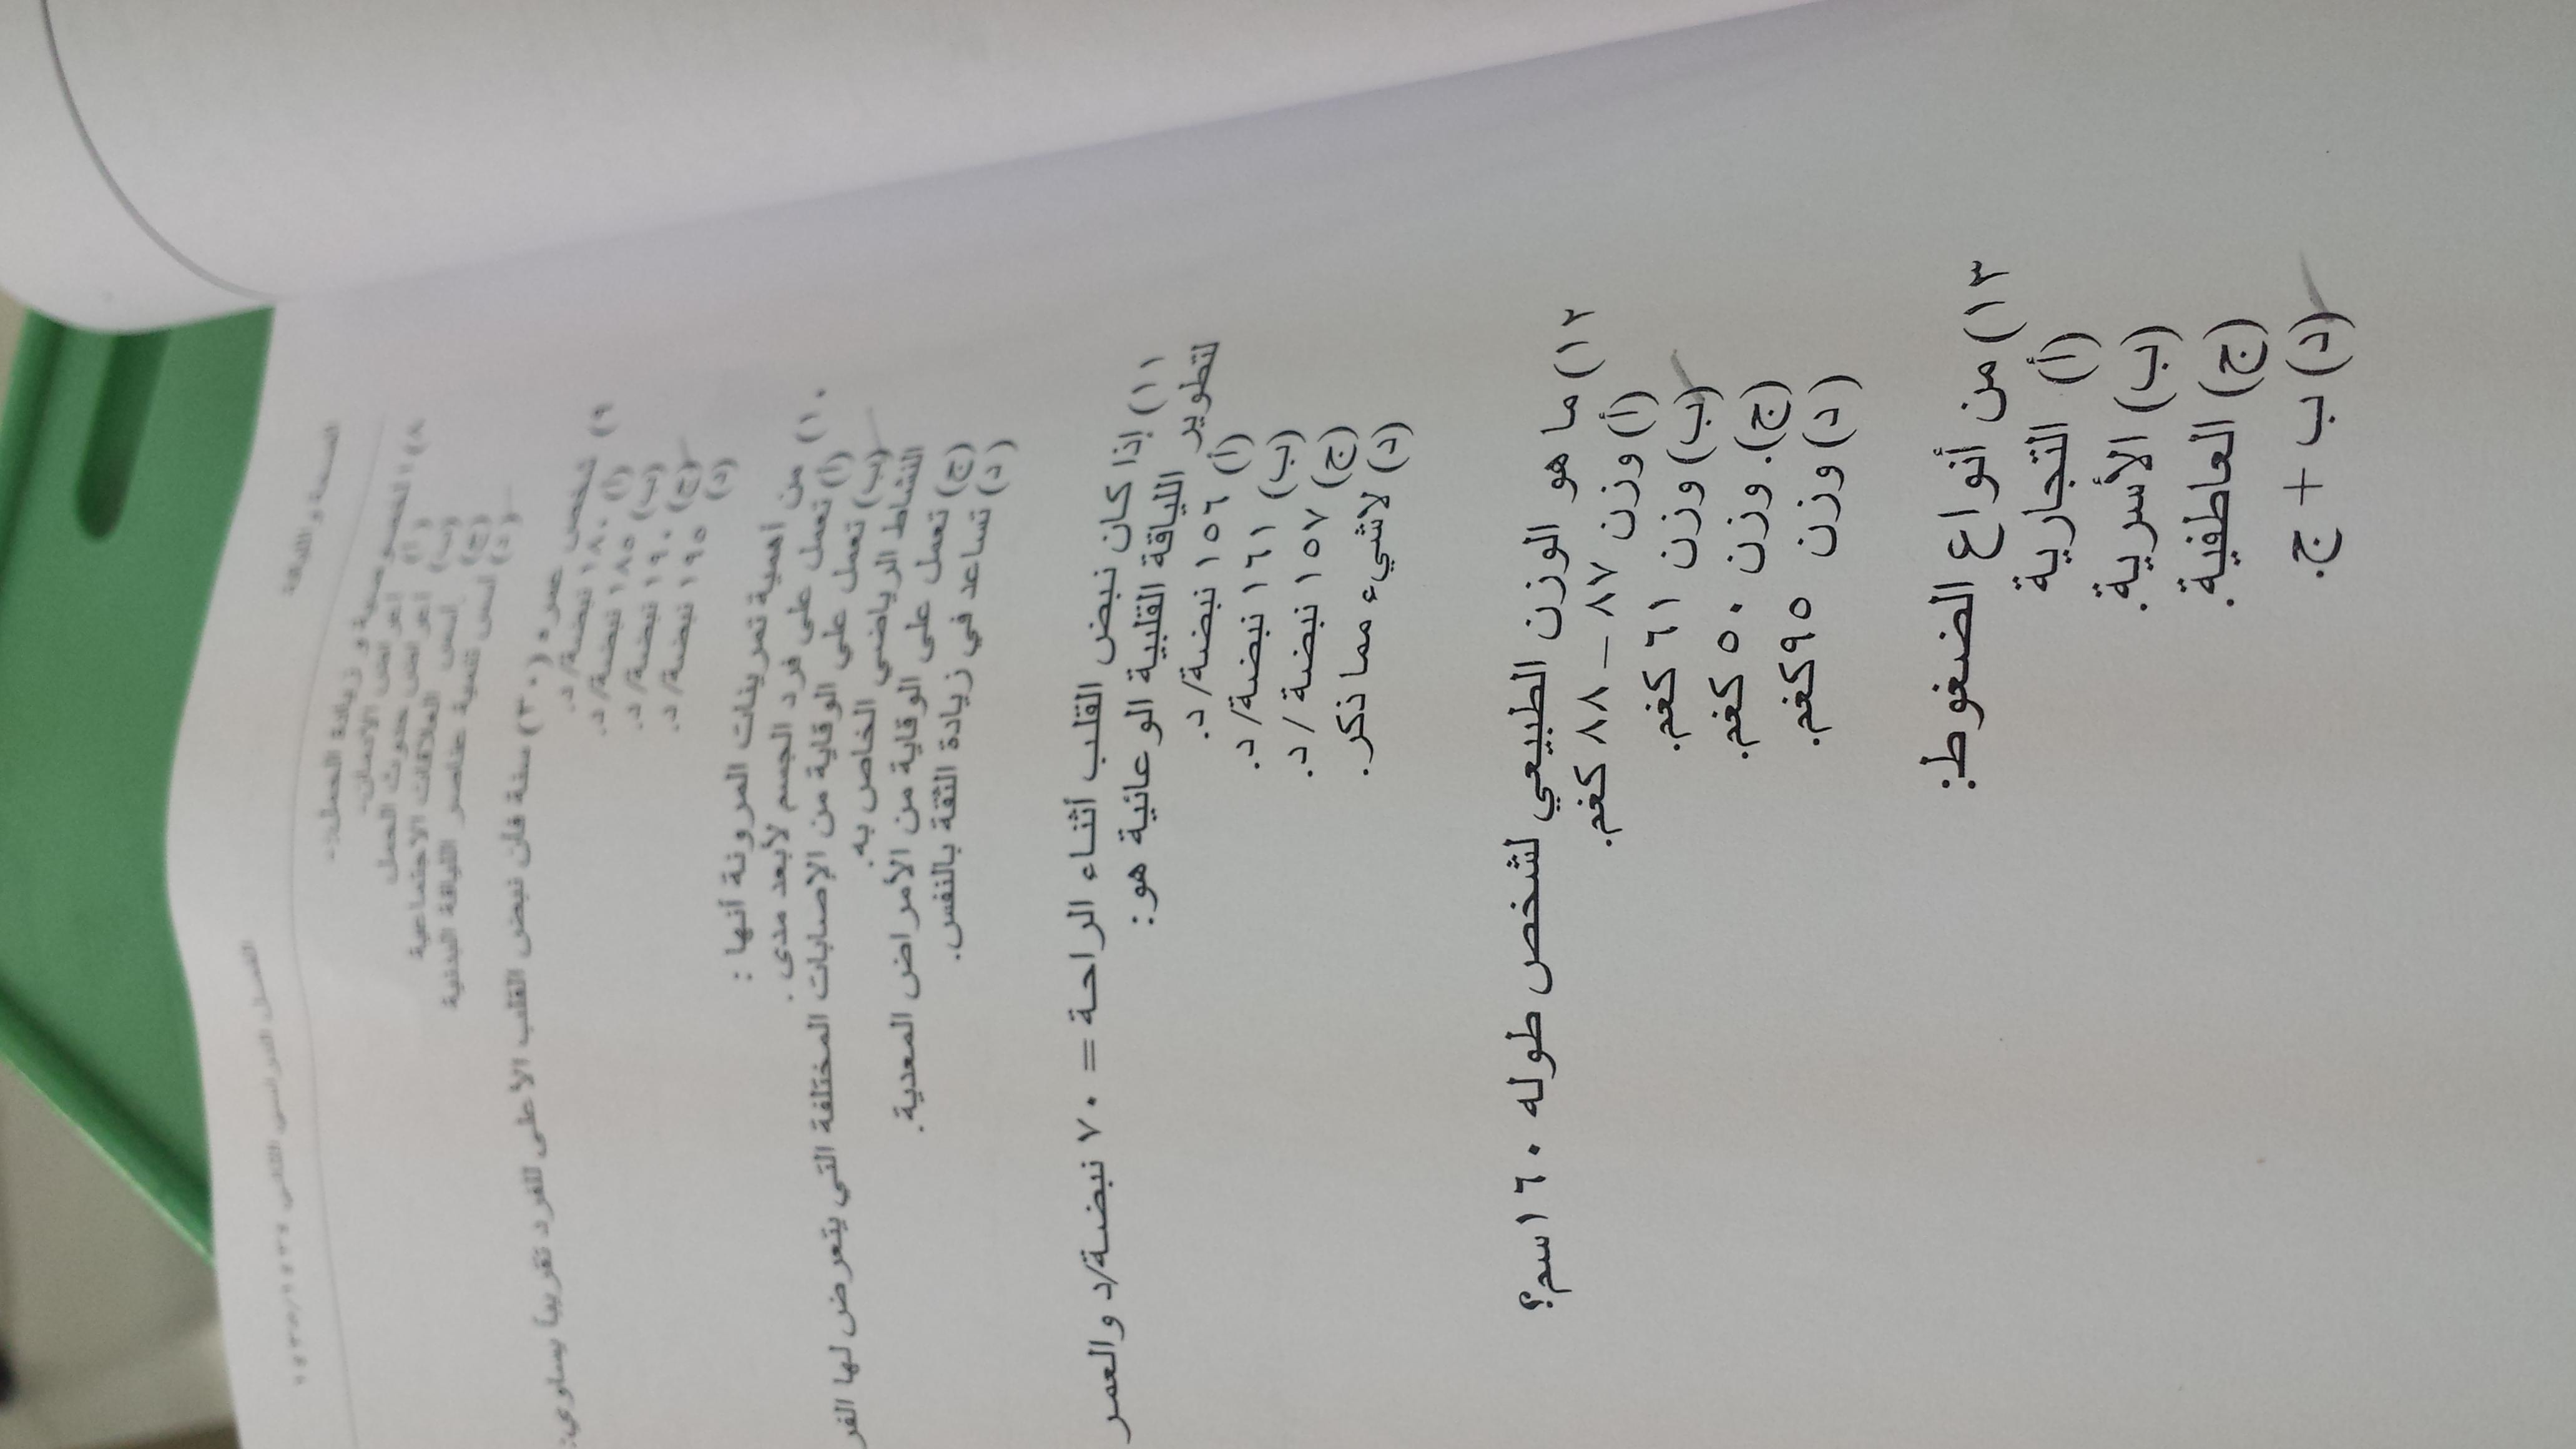 الصحة و اللياقة
٨) الخصوصية و زيادة الحمل:-
(أ)
(ب)
(ج) أسس العلاقات الاجتماعية
(د) أسس تنمية عناصر اللياقة البدنية
٩) شخص عمره (٣٠) سنة فان نبض القلب الأعلى للفرد تقريباً يساوي:
(أ) ١٨٠ نبضة/د.
(ب) ١٨٥ نبضة/د.
(ج) ١٩٠ نبضة/د.
(د) ١٩٥ نبضة/د.
١٠) من أهمية تمرينات المرونة أنها :
(أ) تعمل على فرد الجسم لأبعد مدى .
(ب) تعمل علي الوقاية من الإصابات المختلفة التي يتعرض لها الفر
النشاط الرياضي الخاص به.
(ج) تعمل على الوقاية من الأمراض المعدية.
(د) تساعد في زيادة الثقة بالنفس.
١١) إذا كان نبض القلب أثناء الراحة = ٧٠ نبضة/د والعمر
لتطوير اللياقة القلبية الوعائية هو:
(أ) ١٥٦ نبضة/ د.
(ب) ١٦١ نبضة/ د.
(ج) ١٥٧ نبضة / د.
(د) لاشيء مما ذكر.
١٢) ما هو الوزن الطبيعي لشخص طوله ١٦٠سم؟
(أ) وزن ٨٧ – ٨٨ كغم.
(ب) وزن ٦١ كغم.
(ج). وزن ٥٠ كغم.
(د) وزن ٩٥كغم.
١٣) من أنواع الضغوط:
(أ) التجارية
(ب) الأسرية.
(ج) العاطفية.
(د) ب + ج.